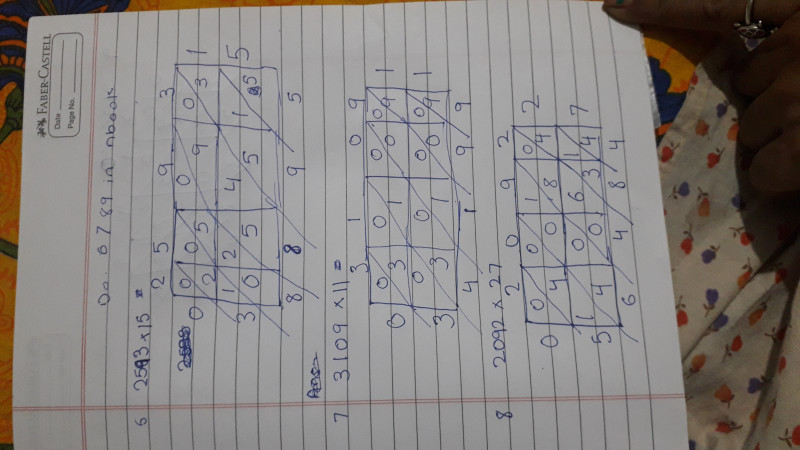 FABER-CASTELL
Date
Page No.
Do. 6 7 8 9 in nbook
6 2593 x 15 =
2 5 9 3
0 0 0 0 1
0 2 5 9 3
1 2 4 1 5
3 0 5 5 5
8 8 9 5
Ans-
7 3109 x 11 =
3 1 0 9
0 0 0 0 1
0 3 1 0 9
0 0 0 0 1
3 3 1 0 9
4 1 9 9
8 2092 x 27
2 0 9 2
0 0 1 0 2
0 4 0 8 4
1 0 6 1 7
5 4 0 3 4
6 4 8 4